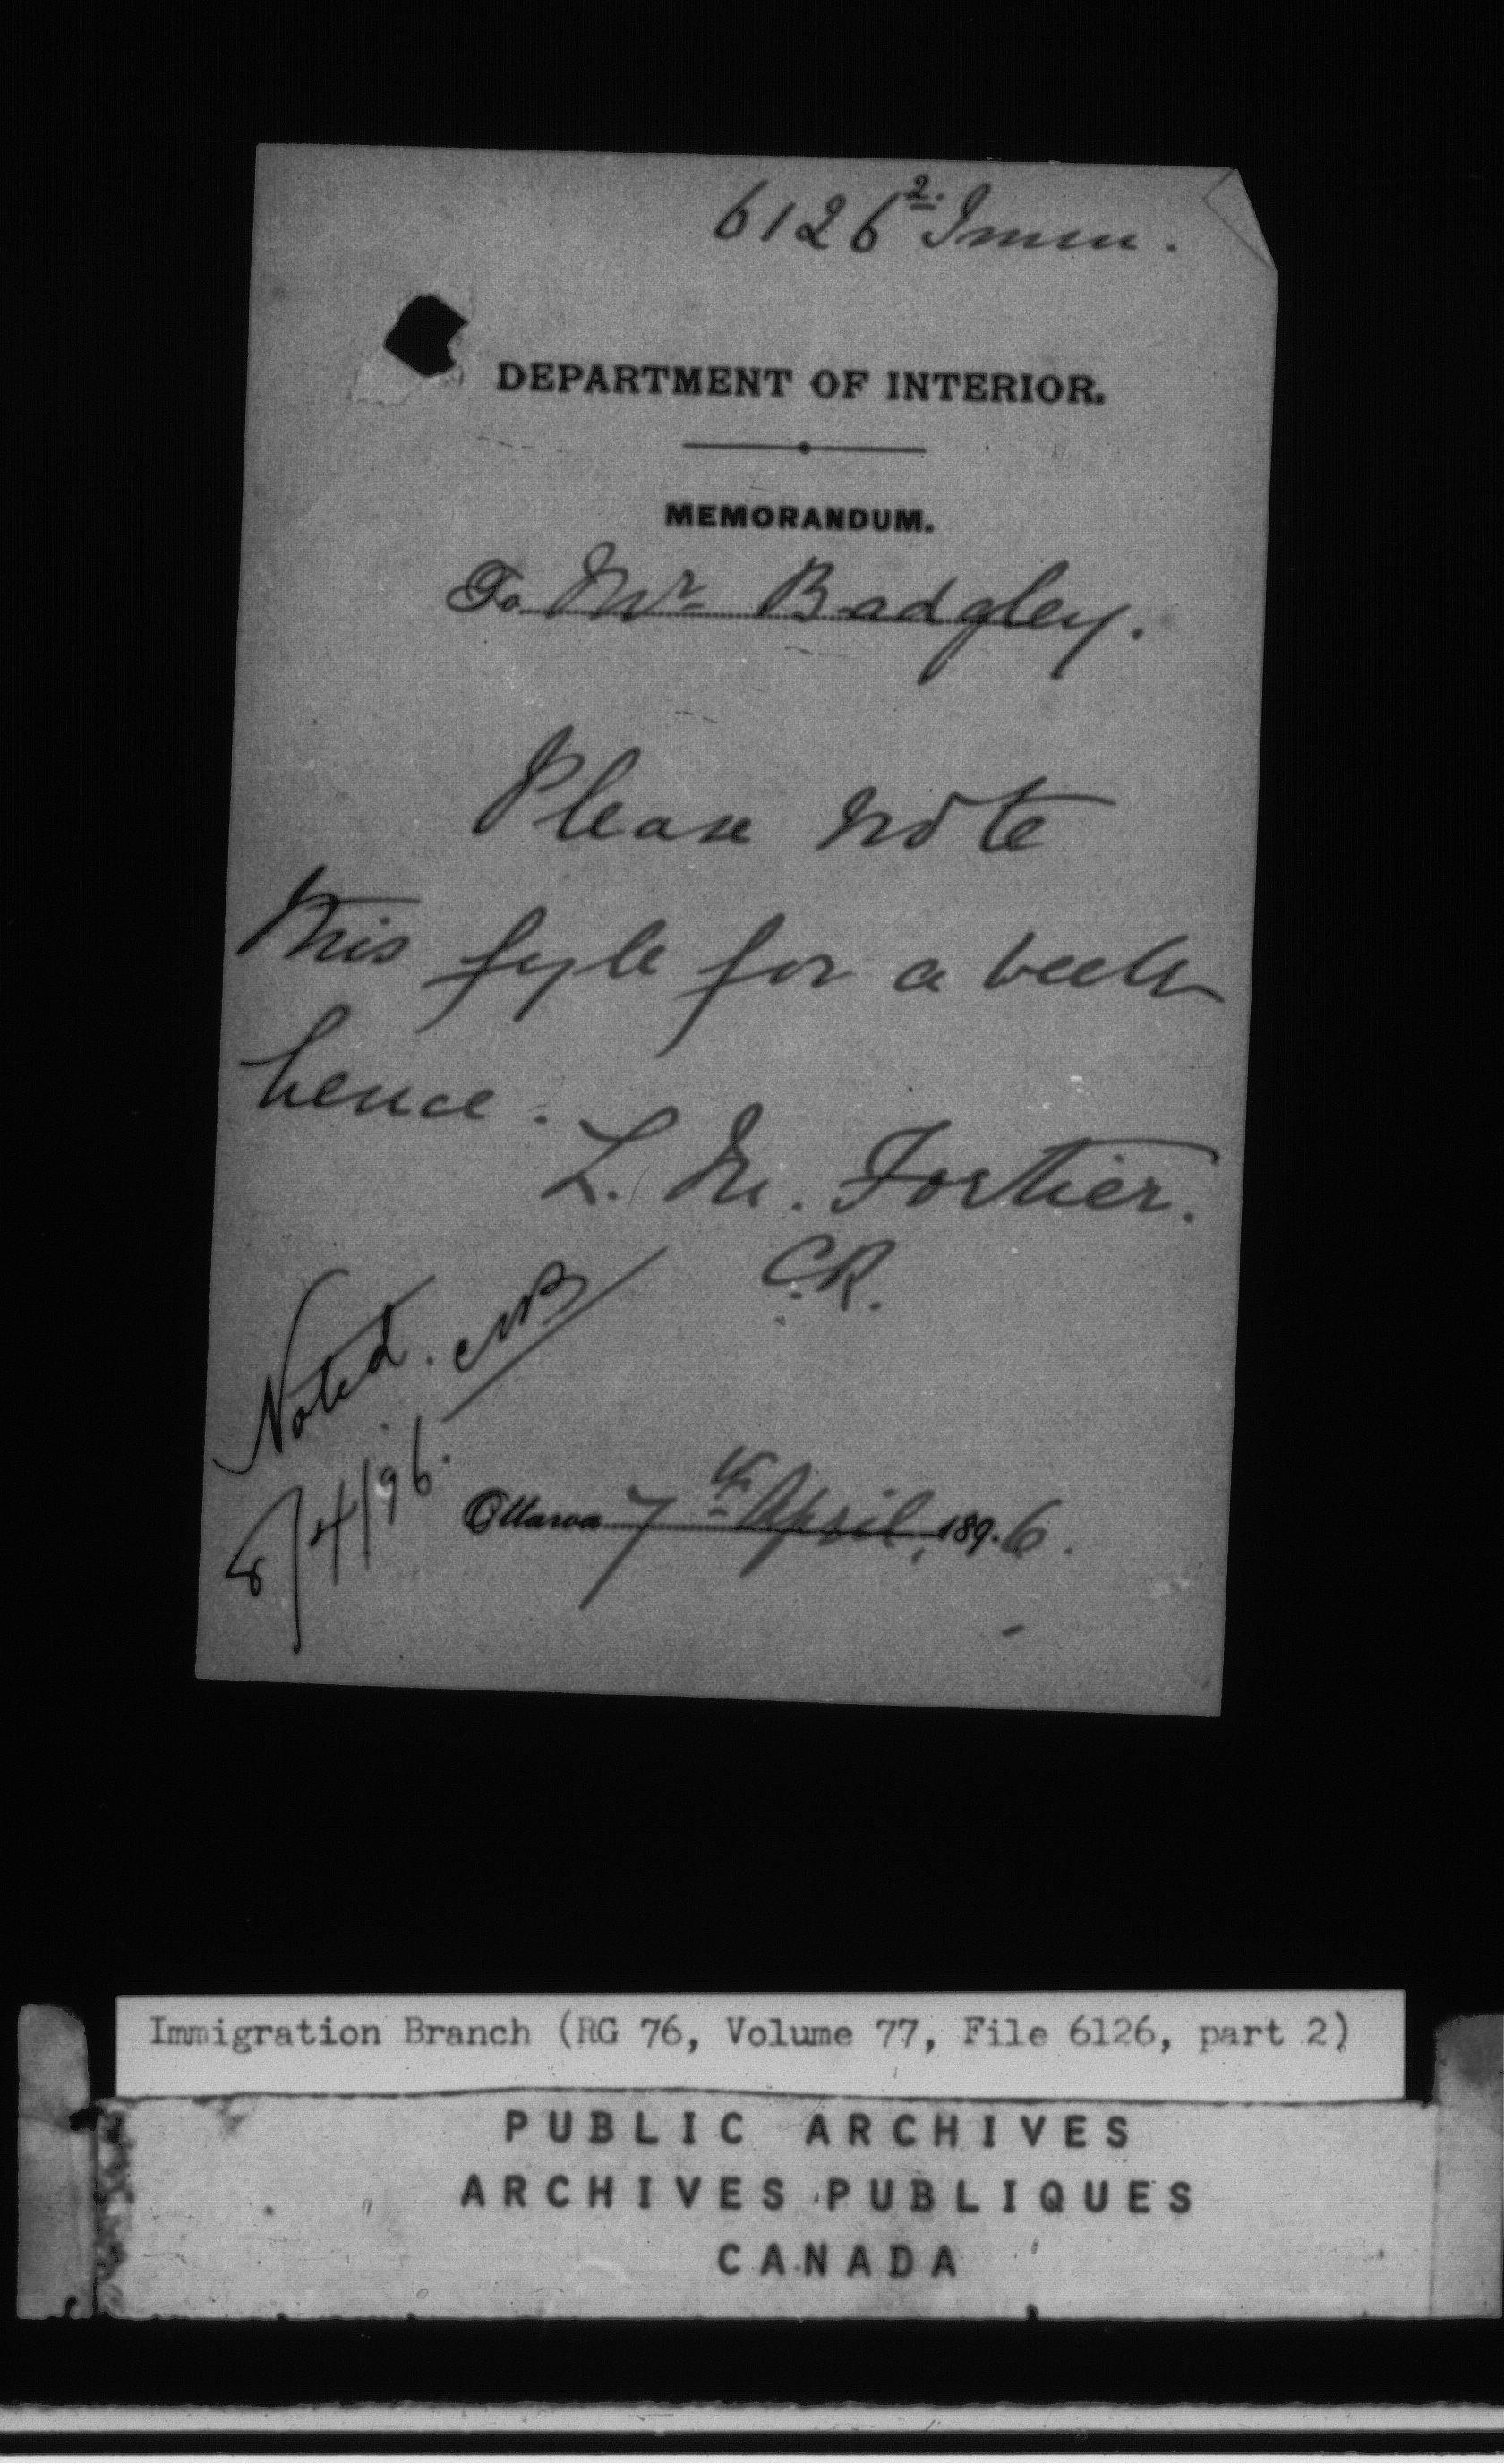 6126 2. Immn.
DEPARTMENT OF INTERIOR.
MEMORANDUM.
To Mr Badgley.
Please note
this fyle for a week
hence.
L. M. Fortier.
C.R.
Noted.
8/4/96.
Ottawa 7th April, 189.6.
Immigration Branch (RG 76, Volume 77, File 6126, part 2)
PUBLIC ARCHIVES
ARCHIVES PUBLIQUES
CANADA